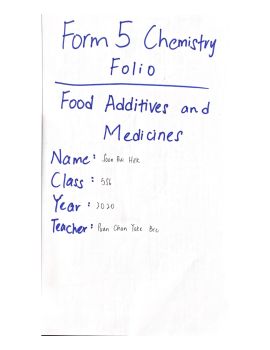 Form 5 Chemistry
Folio
Food Additives and
Medicines
Name :
Class : 5S6
Year : 2020
Teacher : Puan Chan